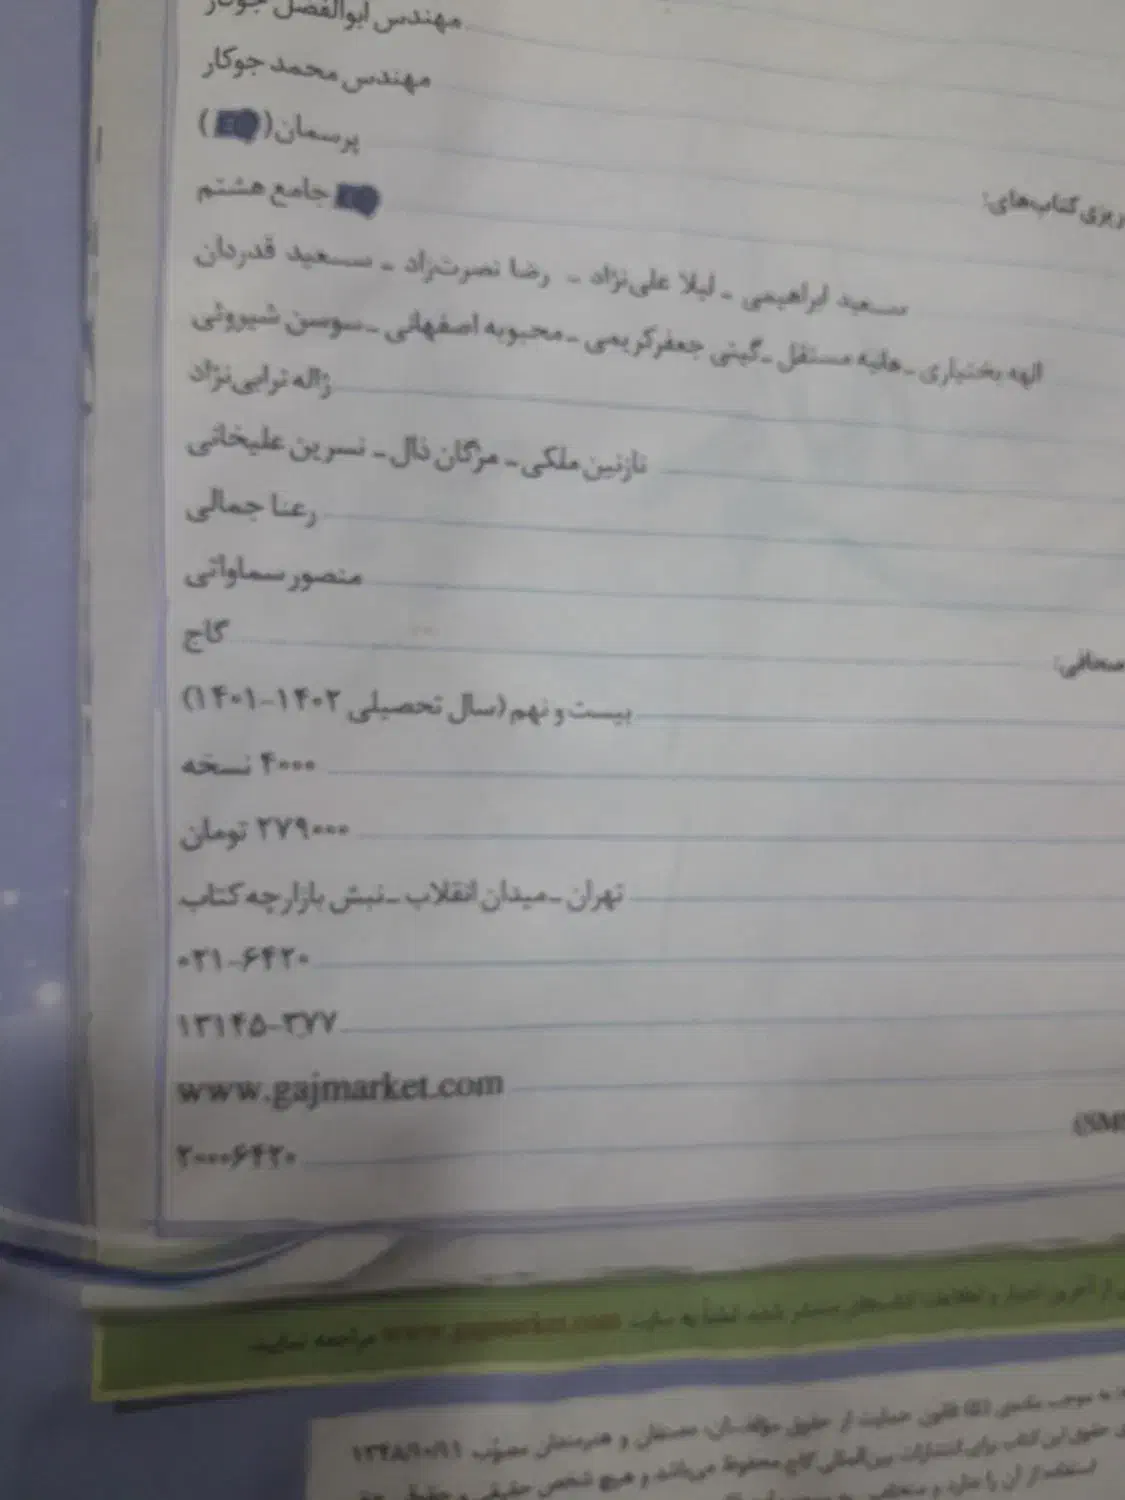 مهندس ابوالفضل جوکار
مهندس محمد جوکار
پرسمان ( )
ریزی کتاب‌های:
جامع هشتم
سعید ابراهیمی ـ لیلا علی‌نژاد ـ رضا نصرت‌زاد ـ سعید قدردان
الهه بختیاری ـ هانیه مستقل ـ گیتی جعفرکریمی ـ محبوبه اصفهانی ـ سوسن شیروئی
ژاله ترابی‌نژاد
نازنین ملکی ـ مژگان ذال ـ نسرین علیخانی
رعنا جمالی
منصور سماواتی
صحافی: گاج
بیست و نهم (سال تحصیلی ۱۴۰۲-۱۴۰۱)
۴۰۰۰ نسخه
۲۷۹۰۰۰ تومان
تهران ـ میدان انقلاب ـ نبش بازارچه کتاب
۰۲۱-۶۴۲۰
۱۳۱۴۵-۳۷۷
www.gajmarket.com
۲۰۰۰۶۴۲۰
مراجعه نمایید.
قانون حمایت از حقوق مؤلفان، مصنفان و هنرمندان مصوّب
حقوق این کتاب برای انتشارات بین‌المللی گاج محفوظ می‌باشد و هیچ شخص حقیقی و حقوقی حق
استفاده از آن را ندارد و